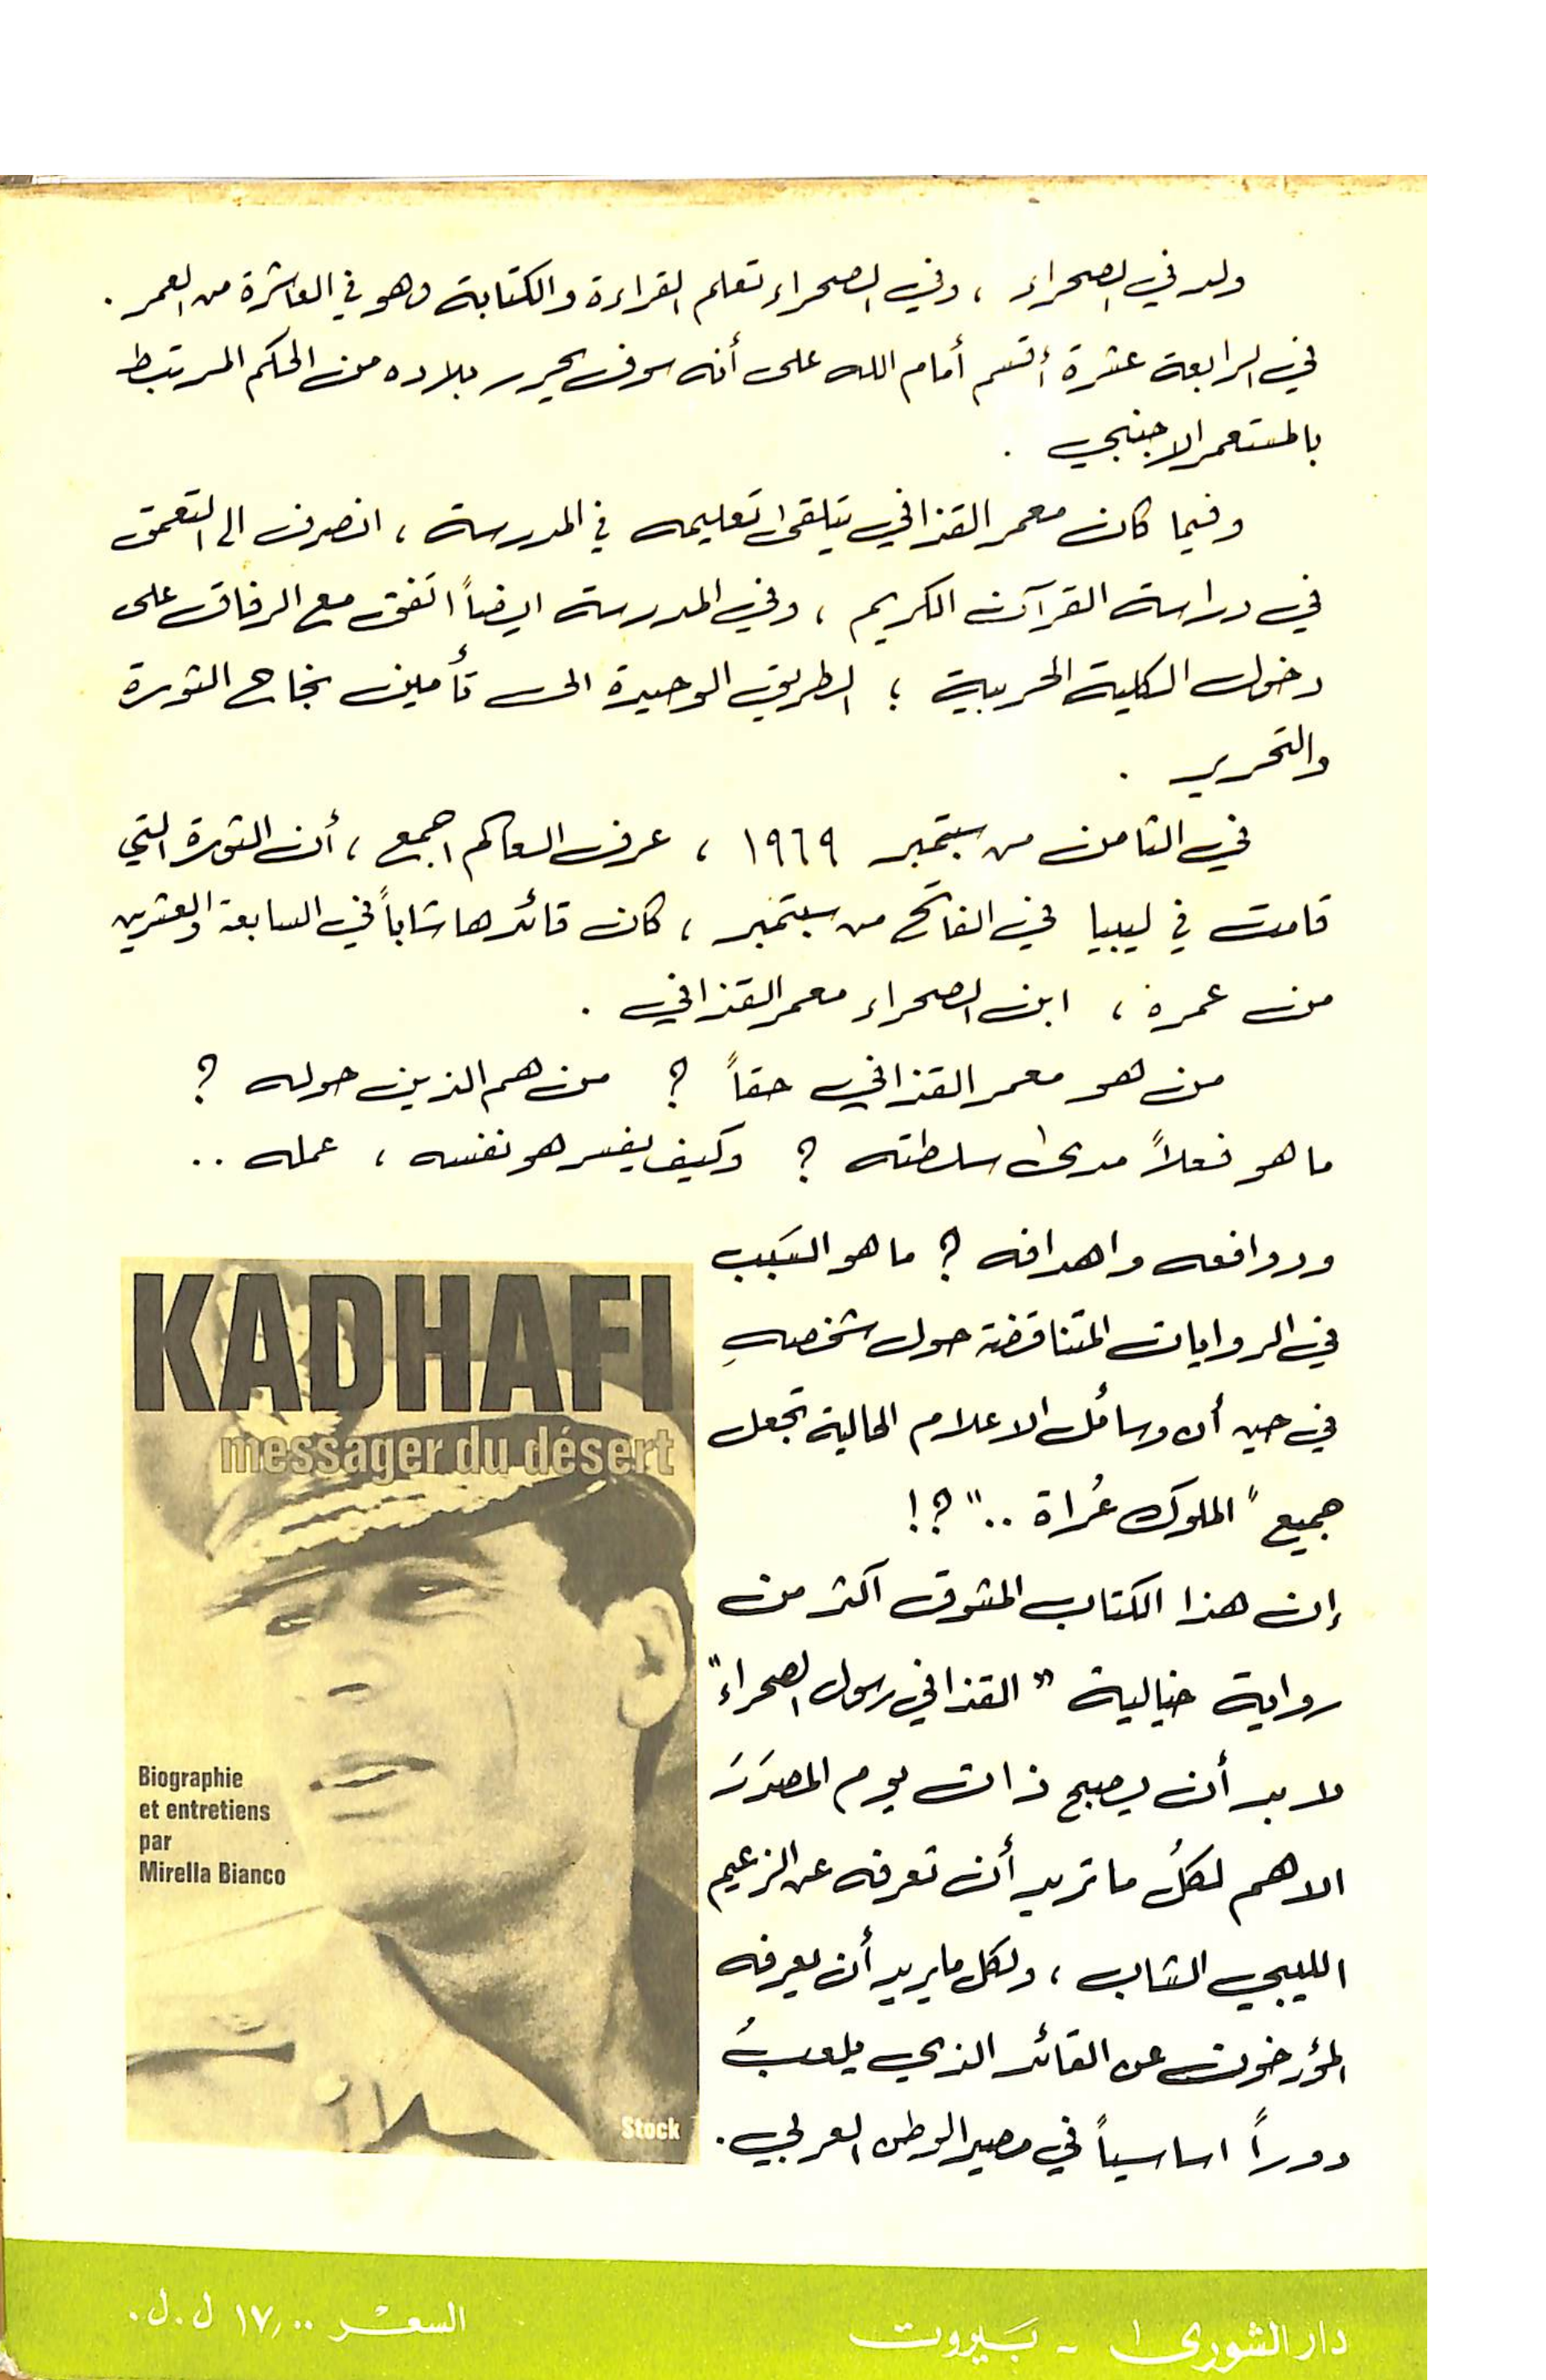 ولد في الصحراء ، وفي الصحراء تعلم القراءة والكتابة وهو في العاشرة من العمر .
في الرابعة عشرة أقسم أمام الله على أنه سوف يحرر بلاده من الحكم المرتبط
بالمستعمر الاجنبي .
وفيما كان معمر القذافي يتلقى تعليمه في المدرسة ، انصرف الى التعمق
في دراسة القرآن الكريم ، وفي المدرسة ايضاً اتفق مع الرفاق على
دخول الكلية الحربية ؛ الطريق الوحيدة الى تأمين نجاح الثورة
والتحرير .
في الثامن من سبتمبر ١٩٦٩ ، عرف العالم اجمع ، أن الثورة التي
قامت في ليبيا في الفاتح من سبتمبر ، كان قائدها شاباً في السابعة والعشرين
من عمره ، ابن الصحراء معمر القذافي .
من هو معمر القذافي حقاً ؟ من هم الذين حوله ؟
ما هو فعلاً مدى سلطته ؟ وكيف يفسر هو نفسه ، عمله ..
ودوافعه واهدافه ؟ ما هو السَبب
في الروايات المتناقضة حول شخصهِ
في حين أن وسائل الاعلام الحالية تجعل
جميع "الملوك عُراة .." ؟!
إن هذا الكتاب المشوق اكثر من
رواية خيالية "القذافي رسول الصحراء"
لا بد أن يصبح ذات يوم المصدَرَ
الاهم لكلُ ما تريد أن تعرفه عن الزعيم
الليبي الشاب ، ولكل ما يريد أن يعرفه
المؤرخون عن القائد الذي يلعبُ
دوراً اساسياً في مصير الوطن العربي .
KADHAFI
messager du désert
Biographie
et entretiens
par
Mirella Bianco
Stock
دار الشورى - بَيروت
السعْر ١٧,٠٠ ل.ل.